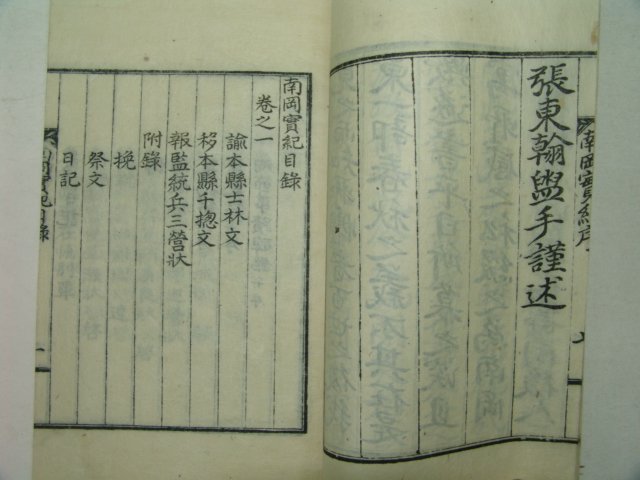 南岡實紀序
張東翰盥手謹述
南岡實紀目錄
卷之一
諭本縣士林文
移本縣千摠文
報監統兵三營狀
附錄
挽
祭文
日記
南岡實紀目錄
一